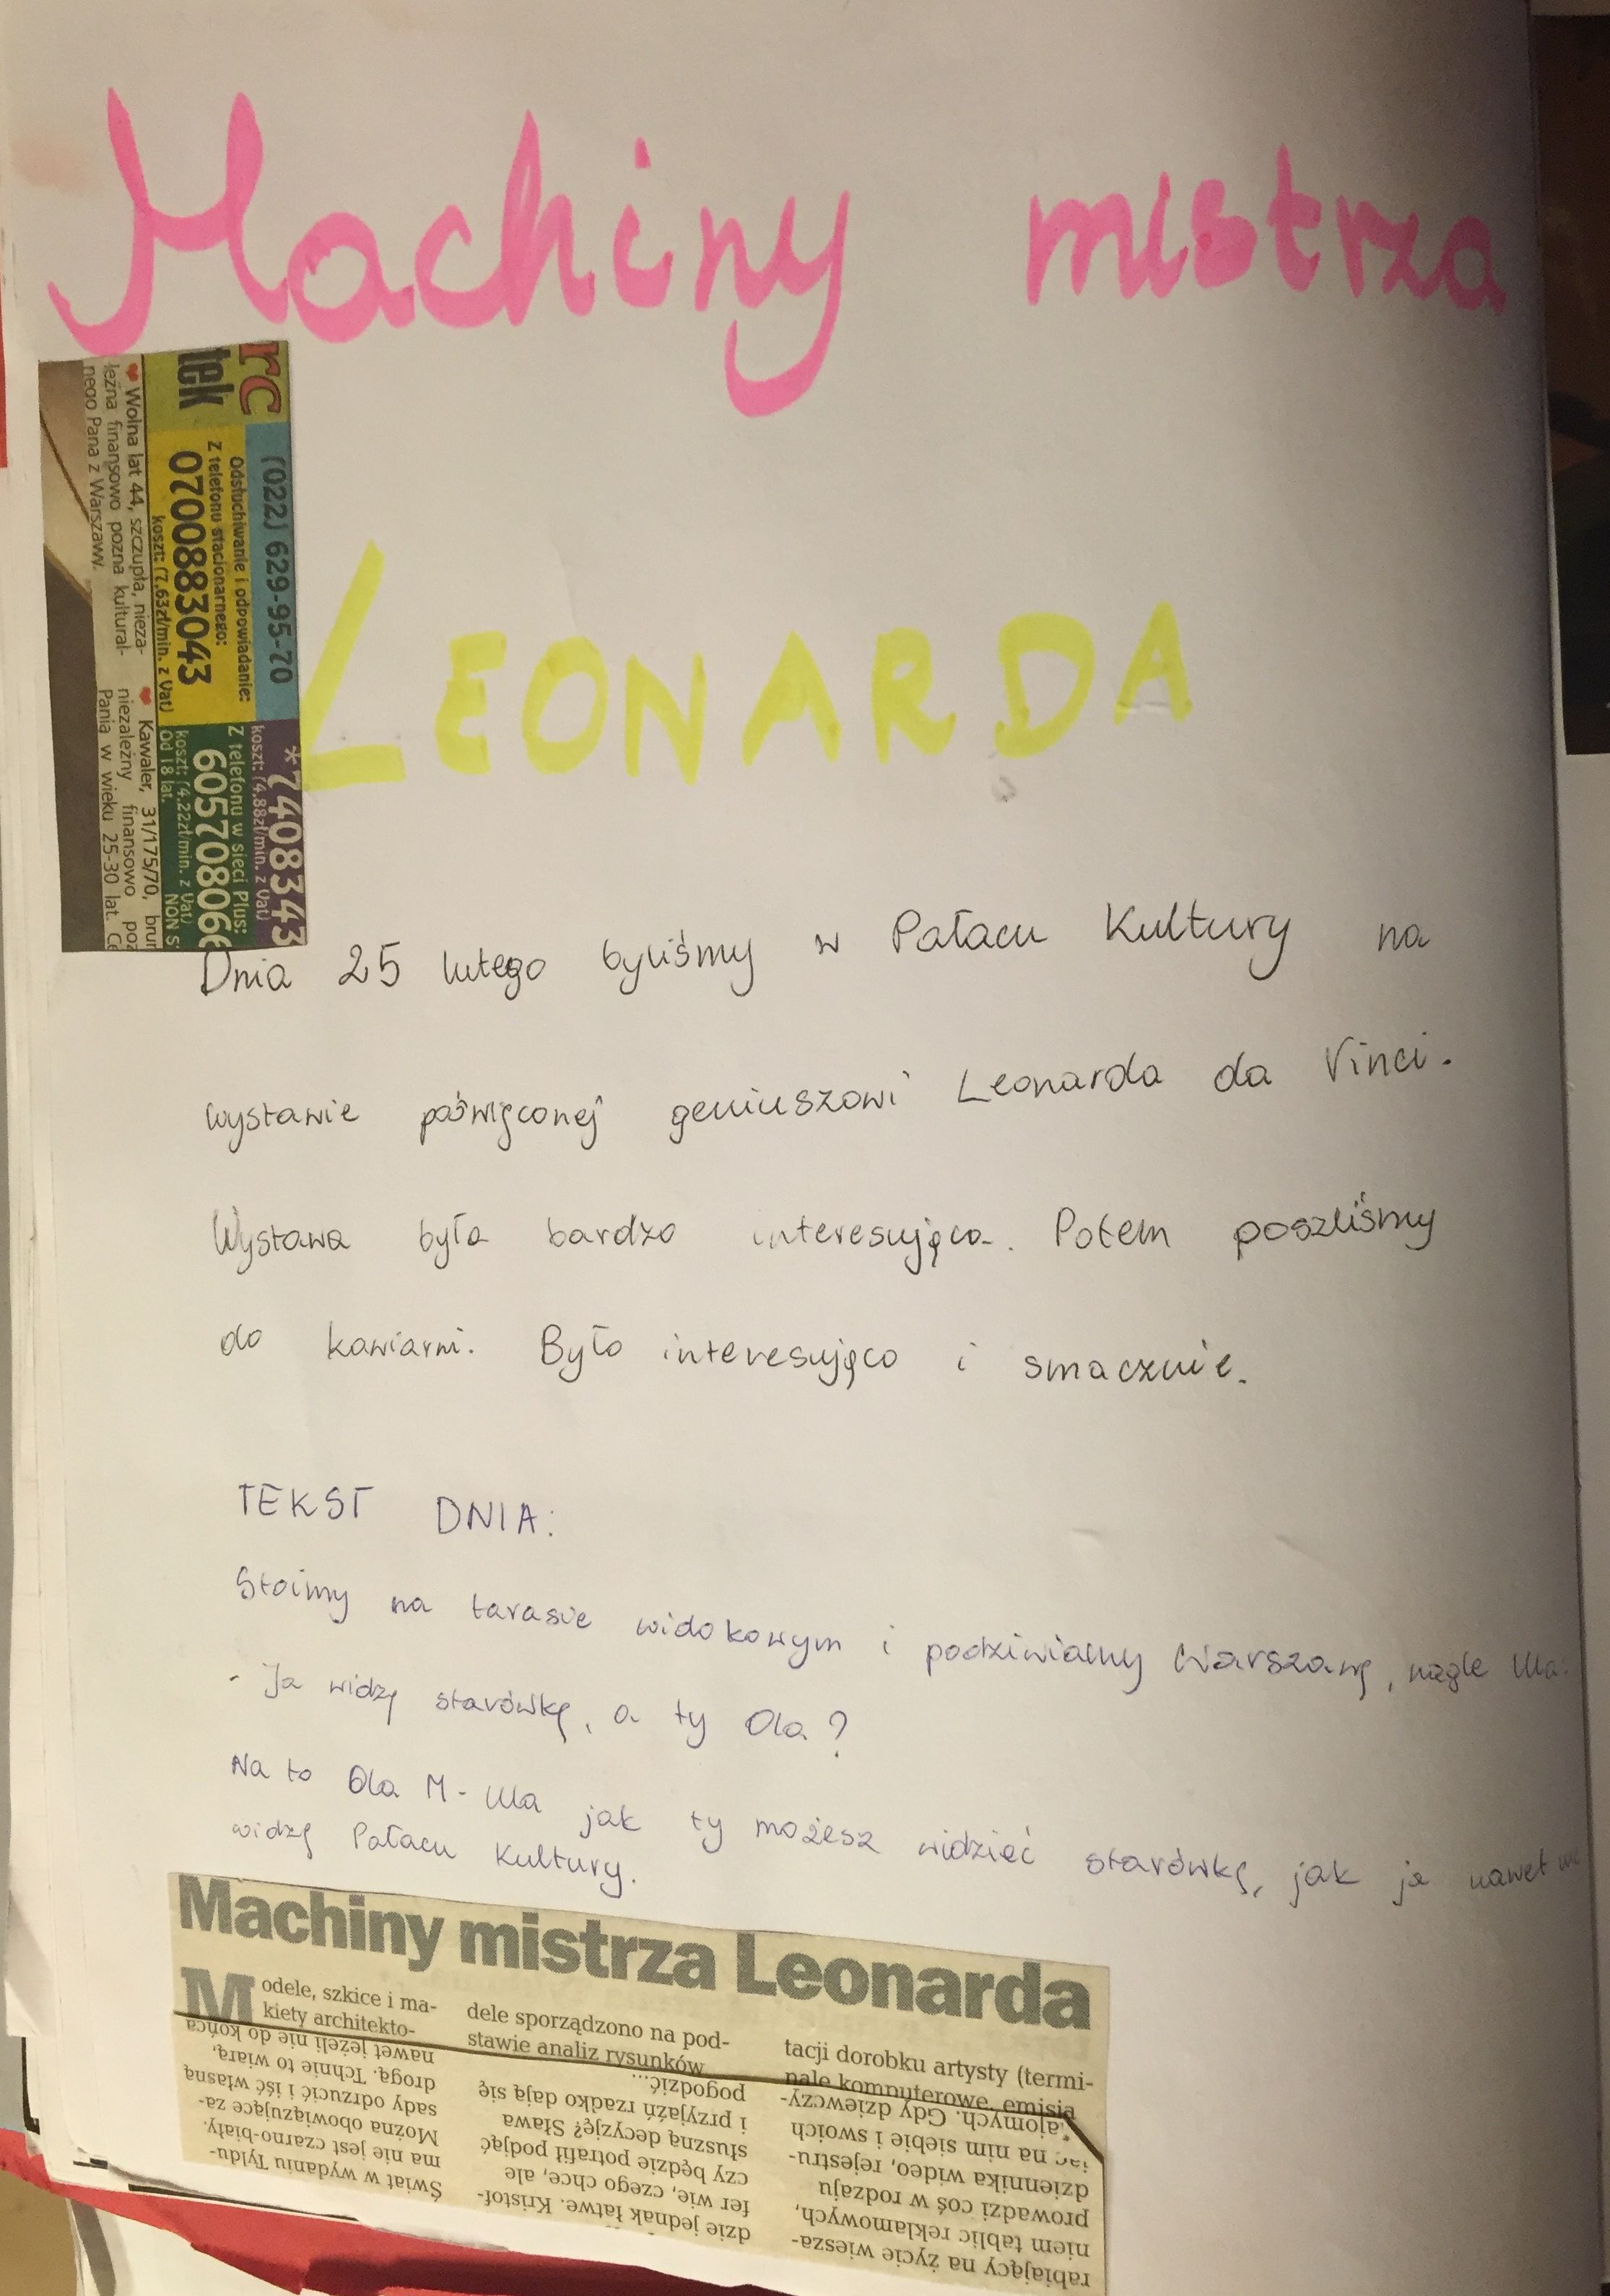 Machiny mistrza
LEONARDA
rc
tek
(022) 629-95-70
Odsłuchiwanie i odpowiadanie:
Z telefonu stacionarnego:
0700883043
koszt: (7,63zł/min. z Vat)
*7408343
koszt: (4,88zł/min. z Vat)
Z telefonu w sieci Plus:
60570806
koszt: (4,22zł/min. z Vat)
Od 18 lat. NON S
❤ Wolna lat 44, szczupła, nieza-
leżna finansowo pozna kultural-
nego Pana z Warszawy.
❤ Kawaler, 31/175/70, brun
niezależny finansowo poz
Panią w wieku 25-30 lat. Ce
Dnia 25 lutego byliśmy w Pałacu Kultury na
wystawie poświęconej geniuszowi Leonarda da Vinci.
Wystawa była bardzo interesująca. Potem poszliśmy
do kawiarni. Było interesująco i smacznie.
TEKST DNIA:
Stoimy na tarasie widokowym i podziwiamy Warszawę, nagle Ula:
- Ja widzę starówkę, a ty Ola?
Na to Ola M - Ula jak ty możesz widzieć starówkę, jak ja nawet nie
widzę Pałacu Kultury.
Machiny mistrza Leonarda
Modele, szkice i ma-
kiety architekto-
dele sporządzono na pod-
stawie analiz rysunków
tacji dorobku artysty (termi-
nale komputerowe, emisja
Świat w wydaniu Tyldu-
ma nie jest czarno-biały.
Można obowiązujące za-
sady odrzucić i iść własną
drogą. Tchnie to wiarą,
nawet jeżeli nie do końca
dzie jednak łatwe. Kristof-
fer wie, czego chce, ale
czy będzie potrafił podjąć
słuszną decyzję? Sława
i przyjaźń rzadko dają się
pogodzić...
rabiający na życie wiesza-
niem tablic reklamowych,
prowadzi coś w rodzaju
dziennika wideo, rejestru-
jąc na nim siebie i swoich
znajomych. Gdy dziewczy-